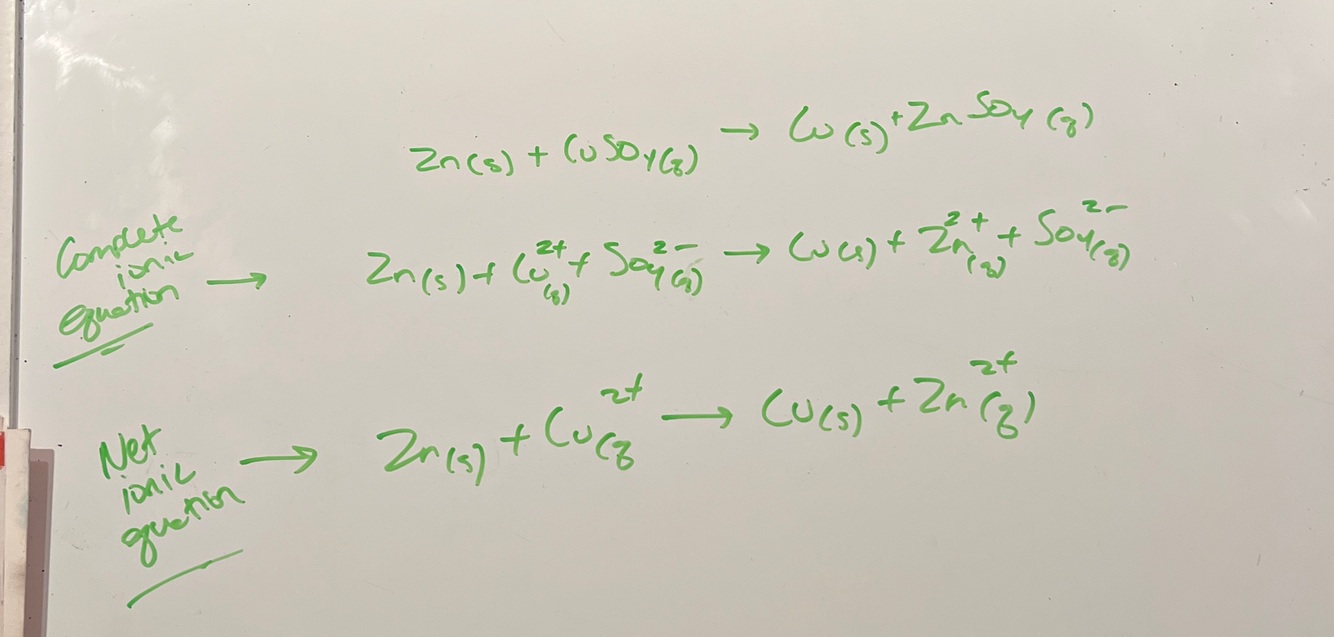 Zn(s) + CuSO4(g) → Cu(s) + ZnSO4(g)
Complete
ionic
equation → Zn(s) + Cu2+(g) + SO42-(g) → Cu(s) + Zn2+(g) + SO42-(g)
Net
ionic
equation → Zn(s) + Cu2+(g → Cu(s) + Zn2+(g)